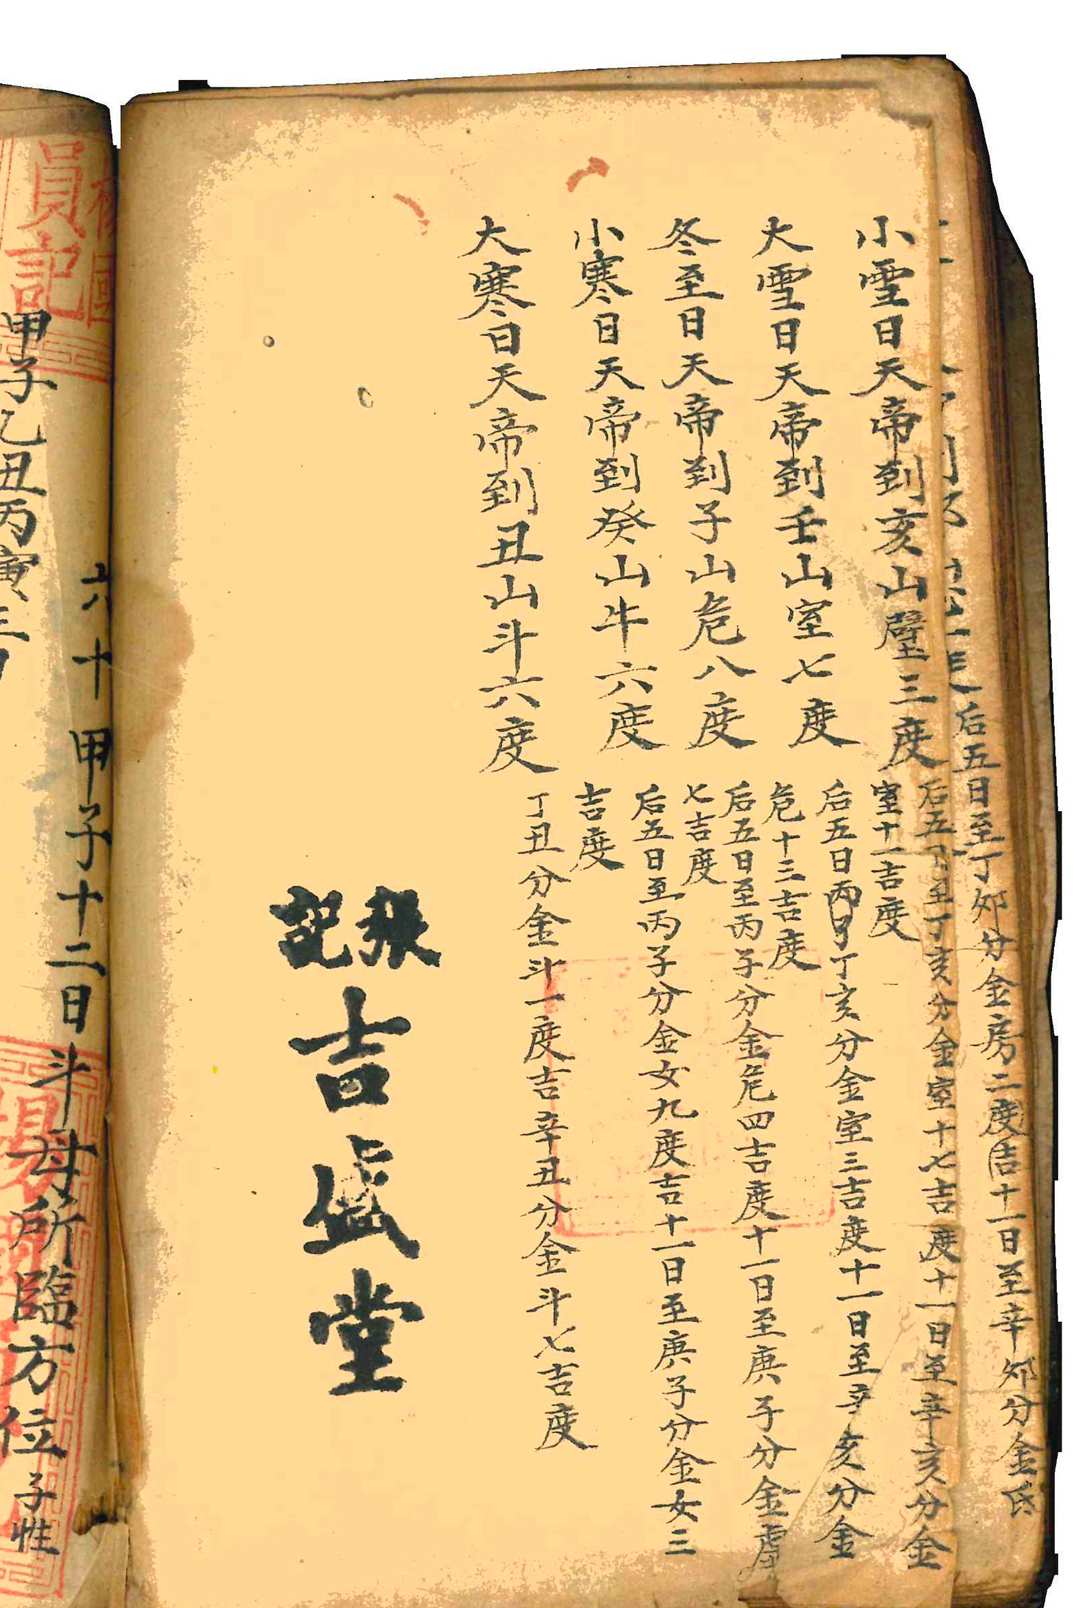 后五日至丁夘分金房二度吉十一日至辛夘分金氐
小雪日天帝到亥山壁三度
后五日至丁亥分金室十七吉度十一日至辛亥分金
室十一吉度
大雪日天帝到壬山室七度
后五日丙子丁亥分金室三吉度十一日至辛亥分金
危十三吉度
冬至日天帝到子山危八度
后五日至丙子分金危四吉度十一日至庚子分金虛
七吉度
小寒日天帝到癸山牛六度
后五日至丙子分金女九度吉十一日至庚子分金女三
吉度
大寒日天帝到丑山斗六度
丁丑分金斗一度吉辛丑分金斗七吉度
張記
吉盛堂
六十甲子十二日斗母所臨方位子性
甲子乙丑丙寅三
員記